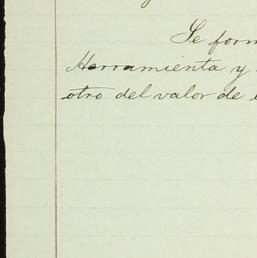 Se form
Herramienta y
otro del valor de